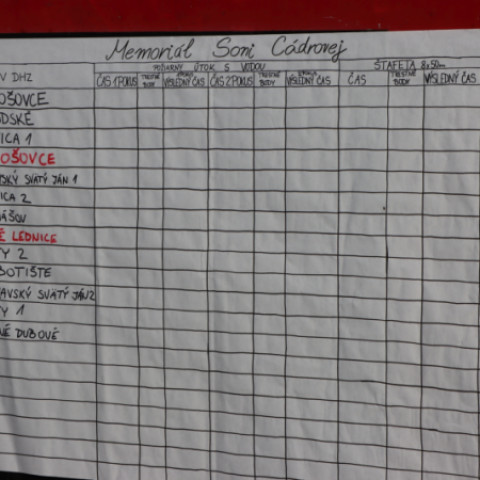 Memoriál Soni Cádrovej
POŽIARNY ÚTOK S VODOU ŠTAFETA 8x50m
V DHZ ČAS 1 POKUS TRESTNÉ BODY VÝSLEDNÝ ČAS ČAS 2 POKUS TRESTNÉ BODY VÝSLEDNÝ ČAS ČAS TRESTNÉ BODY VÝSLEDNÝ ČAS
OŠOVCE
DSKÉ
ICA 1
OŠOVCE
SKÝ SVÄTÝ JÁN 1
ICA 2
ÁŠOV
É LEDNICE
Y 2
BOTIŠTE
AVSKÝ SVÄTÝ JÁN 2
Y 1
NÉ DUBOVÉ